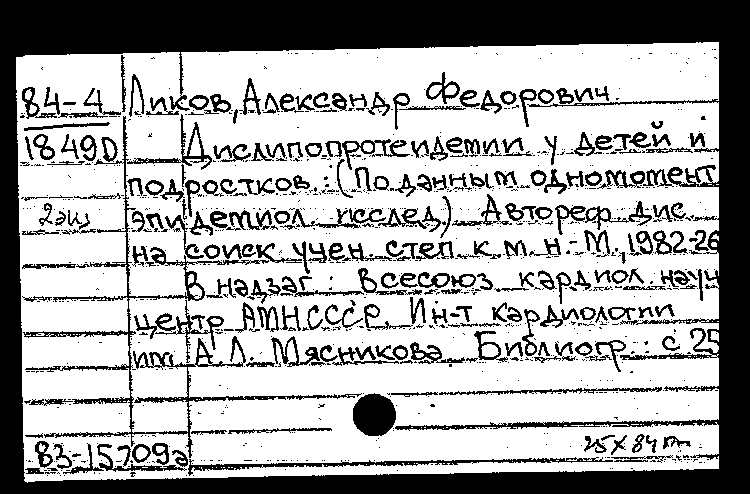 84-4 Ликов, Александр Федорович
1849D Дислипопротеидемии у детей и
подростков.: (По данным одномомент
2 экз эпидемиол. исслед.) Автореф дис.
на соиск учен. степ к. м. н.-М., 1982-26
В надзаг: Всесоюз. кардиол. науч
центр АМН СССР. Ин-т кардиологии
им. А. Л. Мясникова. Библиогр.: с 25
83-15709а